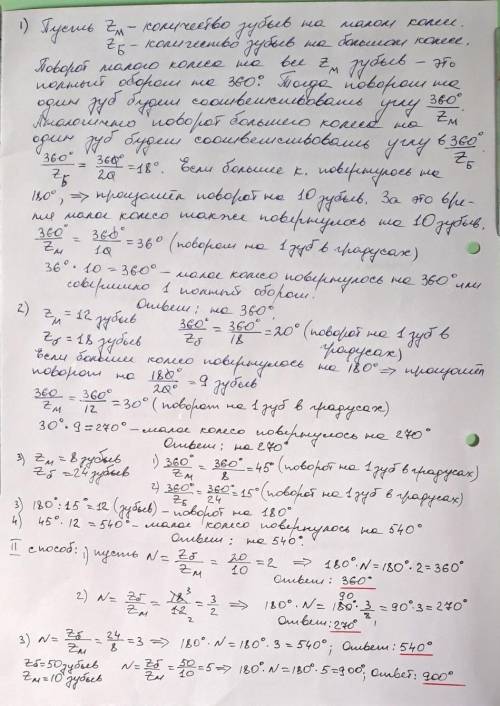 1) Пусть Zм - количество зубьев на малом колесе.
Zб - количество зубьев на большом колесе.
Поворот малого колеса на все Zм зубьев - это
полный оборот на 360°. Тогда поворот на
один зуб будет соответствовать углу 360°/Zм
Аналогично поворот большего колеса на
один зуб будет соответствовать углу в 360°/Zб
360°/Zб = 360°/20 = 18°. Если большее к. повернулось на
180°, ⇒ произошёл поворот на 10 зубьев. За это вре-
мя малое колесо также повернулось на 10 зубьев.
360°/Zм = 360°/10 = 36° (поворот на 1 зуб в градусах)
36° · 10 = 360° - малое колесо повернулось на 360° или
совершило 1 полный оборот.
Ответ: на 360°.
2) Zм = 12 зубьев
Zб = 18 зубьев 360°/Zб = 360°/18 = 20° (поворот на 1 зуб в
градусах)
Если большее колесо повернулось на 180° ⇒ произошёл
поворот на 180°/20° = 9 зубьев
360/Zм = 360°/12 = 30° (поворот на 1 зуб в градусах)
30° · 9 = 270° - малое колесо повернулось на 270°
Ответ: на 270°
3) Zм = 8 зубьев 1) 360°/Zм = 360°/8 = 45° (поворот на 1 зуб в градусах)
Zб = 24 зубьев
2) 360°/Zб = 360°/24 = 15° (поворот на 1 зуб в градусах)
3) 180° : 15° = 12 (зубьев) - поворот на 180°
4) 45° · 12 = 540° - малое колесо повернулось на 540°
Ответ: на 540°.
II способ: 1) пусть N = Zб/Zм = 20/10 = 2 ⇒ 180° · N = 180° · 2 = 360°
Ответ: 360°
2) N = Zб/Zм = 18/12 = 3/2 ⇒ 180° · N = 180° · 3/2 = 90° · 3 = 270°
Ответ: 270°
3) N = Zб/Zм = 24/8 = 3 ⇒ 180° · N = 180° · 3 = 540°; Ответ: 540°
Zб = 50 зубьев N = Zб/Zм = 50/10 = 5 ⇒ 180° · N = 180° · 5 = 900°; Ответ: 900°
Zм = 10 зубьев